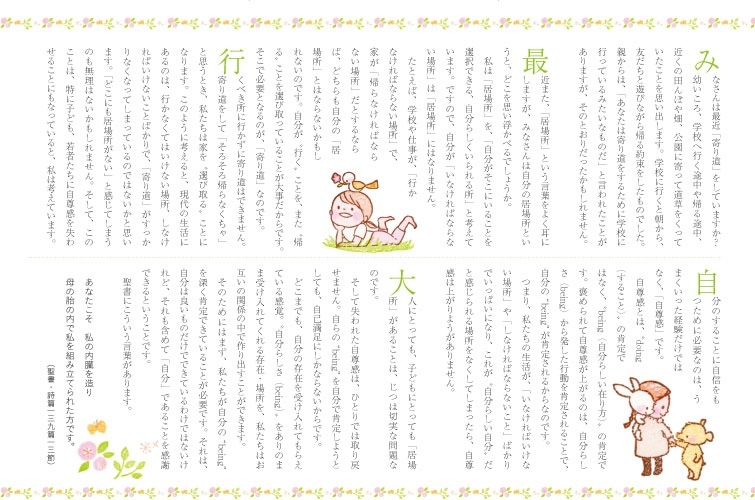 みなさんは最近「寄り道」をしていますか？
幼いころ、学校へ行く途中や帰る途中、
近くの田んぼや畑、公園に寄って道草をくって
いたことを思い出します。学校に行くと朝から、
友だちと遊びながら帰る約束をしたものでした。
親からは、「あなたは寄り道をするために学校に
行っているみたいなものだ」と言われたことが
ありますが、そのとおりだったかもしれません。
最近また、「居場所」という言葉をよく耳に
しますが、みなさんは自分の居場所とい
うと、どこを思い浮かべるでしょうか。
私は「居場所」を、「自分がそこにいることを
選択できる、自分らしくいられる所」と考えて
います。ですので、自分が「いなければならな
い場所」は「居場所」にはなりません。
たとえば、学校や仕事が、「行か
なければならない場所」で、
家が「帰らなければなら
ない場所」だとするなら
ば、どちらも自分の「居
場所」とはならないかもし
れないのです。自分が〝行く〟ことを、また〝帰
る〟ことを選び取っていることが大事だからです。
そこで必要となるのが、「寄り道」なのです。
行くべき所に行かずに寄り道はできません。
寄り道をして「そろそろ帰らなくちゃ」
と思うとき、私たちは家を〝選び取る〟ことに
なります。このように考えると、現代の生活に
あるのは、行かなくてはいけない場所、しなけ
ればいけないことばかりで、「寄り道」がすっか
りなくなってしまっているのではないかと思い
ます。「どこにも居場所がない」と感じてしまう
のも無理はないかもしれません。そして、この
ことは、特に子ども、若者たちに自尊感を失わ
せることにもなっていると、私は考えています。
自分のすることに自信をも
つために必要なのは、う
まくいった経験だけでは
なく、「自尊感」です。
自尊感とは、〝doing
（すること）〟の肯定で
はなく、〝being（自分らしい在り方）〟の肯定で
す。褒められて自尊感が上がるのは、自分らし
さ（being）から発した行動を肯定されることで、
自分の〝being〟が肯定されるからなのです。
つまり、私たちの生活が、「いなければいけな
い場所」や「しなければならないこと」ばかり
でいっぱいになり、これが〝自分らしい自分〟だ
と感じられる場所をなくしてしまったら、自尊
感は上がりようがありません。
大人にとっても、子どもにとっても「居場
所」があることは、じつは切実な問題な
のです。
そして失われた自尊感は、ひとりでは取り戻
せません。自らの〝being〟を自分で肯定しようと
しても、自己満足にしかならないからです。
どこまでも、自分の存在を受け入れてもらえ
ている感覚。〝自分らしさ（being）〟をありのま
ま受け入れてくれる存在・場所を、私たちはお
互いの関係の中で作り出すことができます。
そのためにはまず、私たちが自分の〝being〟
を深く肯定できていることが必要です。それは、
自分は良いものだけでできているわけではないけ
れど、それも含めて「自分」であることを感謝
できるということです。
聖書にこういう言葉があります。
あなたこそ　私の内臓を造り
母の胎の内で私を組み立てられた方です。
（聖書・詩篇一三九篇一三節）